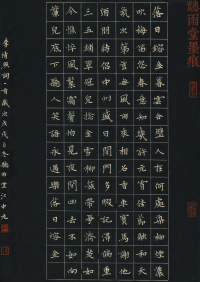 聽雨堂墨痕
落日鎔金暮雲合璧人在何處染柳煙濃
吹梅笛怨春意知幾許元宵佳節融和天
氣次第豈無風雨來相召香車寶馬謝他
酒朋詩侶中州盛日閨門多暇記得偏重
三五鋪翠冠兒撚金雪柳簇帶爭濟楚如
今憔悴風鬟霜鬢怕見夜間出去不如向
簾兒底下聽人笑語永遇樂落日鎔金
李清照詞一首歲次